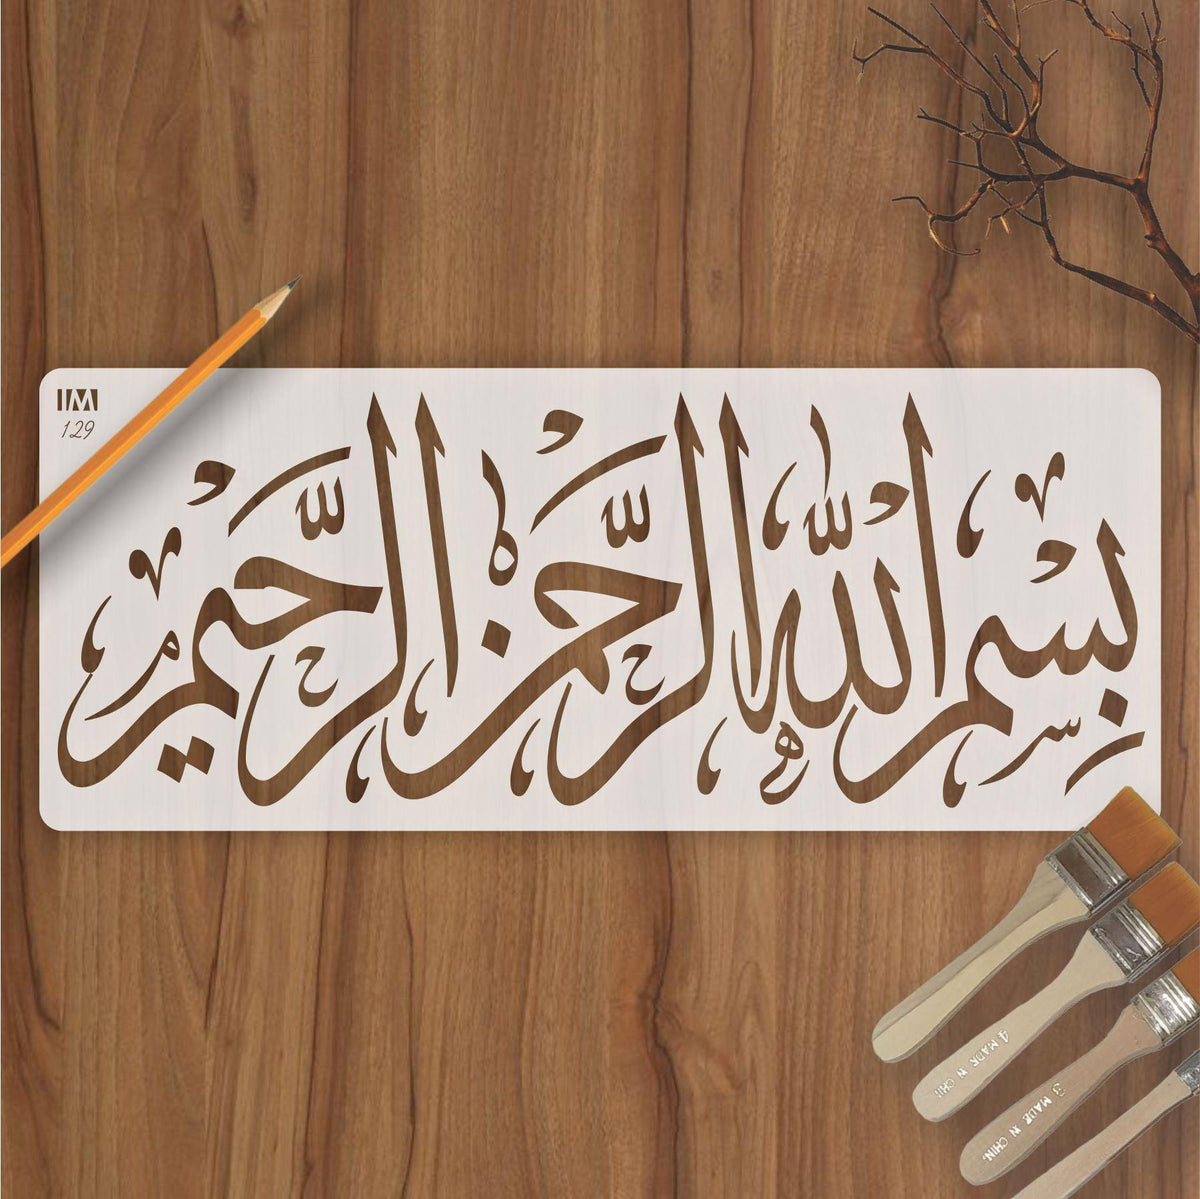 IIM
129
بِسْمِ اللَّهِ الرَّحْمٰنِ الرَّحِيْمِ
4 MADE IN CHI
3 MADE IN CHIN.